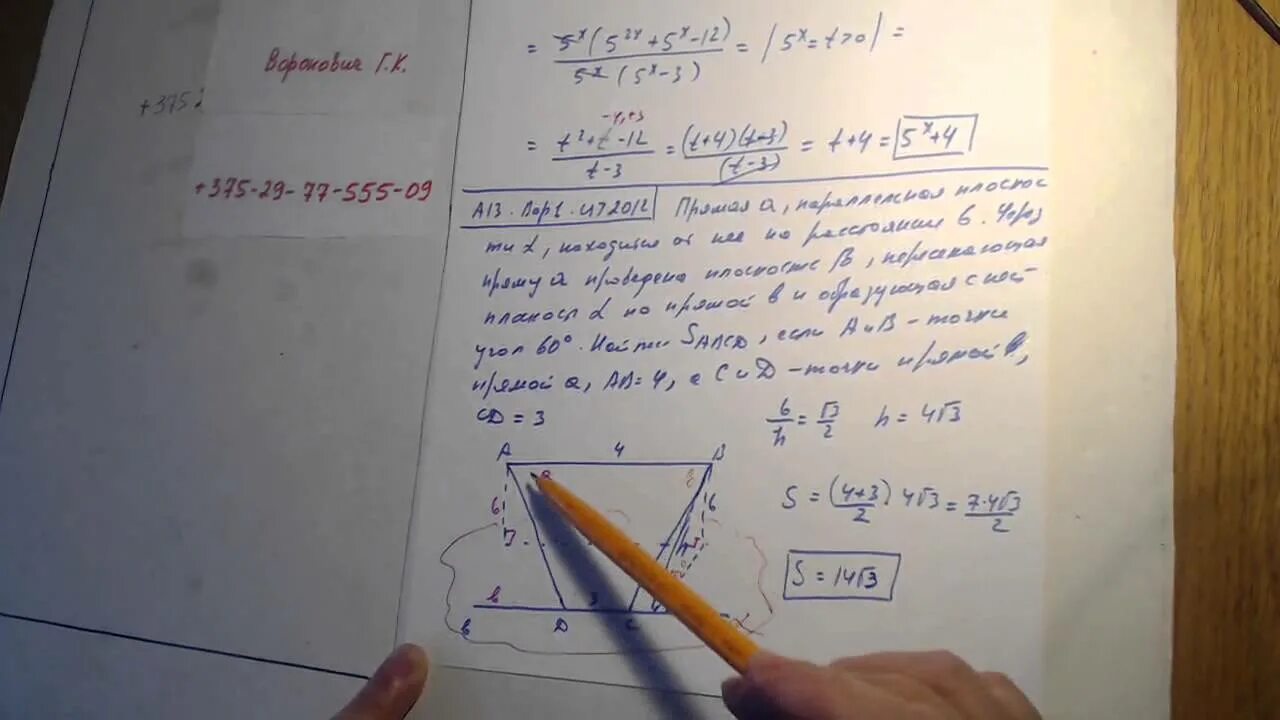 Воронович Г.К.
+375 2
+375-29-77-555-09
= 5^x(5^{2x}+5^x-12) / 5^x(5^x-3) = |5^x=t>0| =
-4,+3
= t²+t-12 / t-3 = (t+4)(t-3) / (t-3) = t+4 = 5^x+4
А13. Вар1. ЦТ2012 Прямая а, параллельная плоскос
ти α, находится от нее на расстоянии 6. Через
прямую а проведена плоскость β, пересекающая
плоскость α по прямой в и образующая с ней
угол 60°. Найти S_{ABCD}, если А и В - точки
прямой а, АВ=4, а С и D - точки прямой в,
CD = 3
6/h = √3/2 h = 4√3
A 4 B
a β
6 6
S = (4+3)/2 · 4√3 = 7·4√3/2
S = 14√3
в 3
в D C α